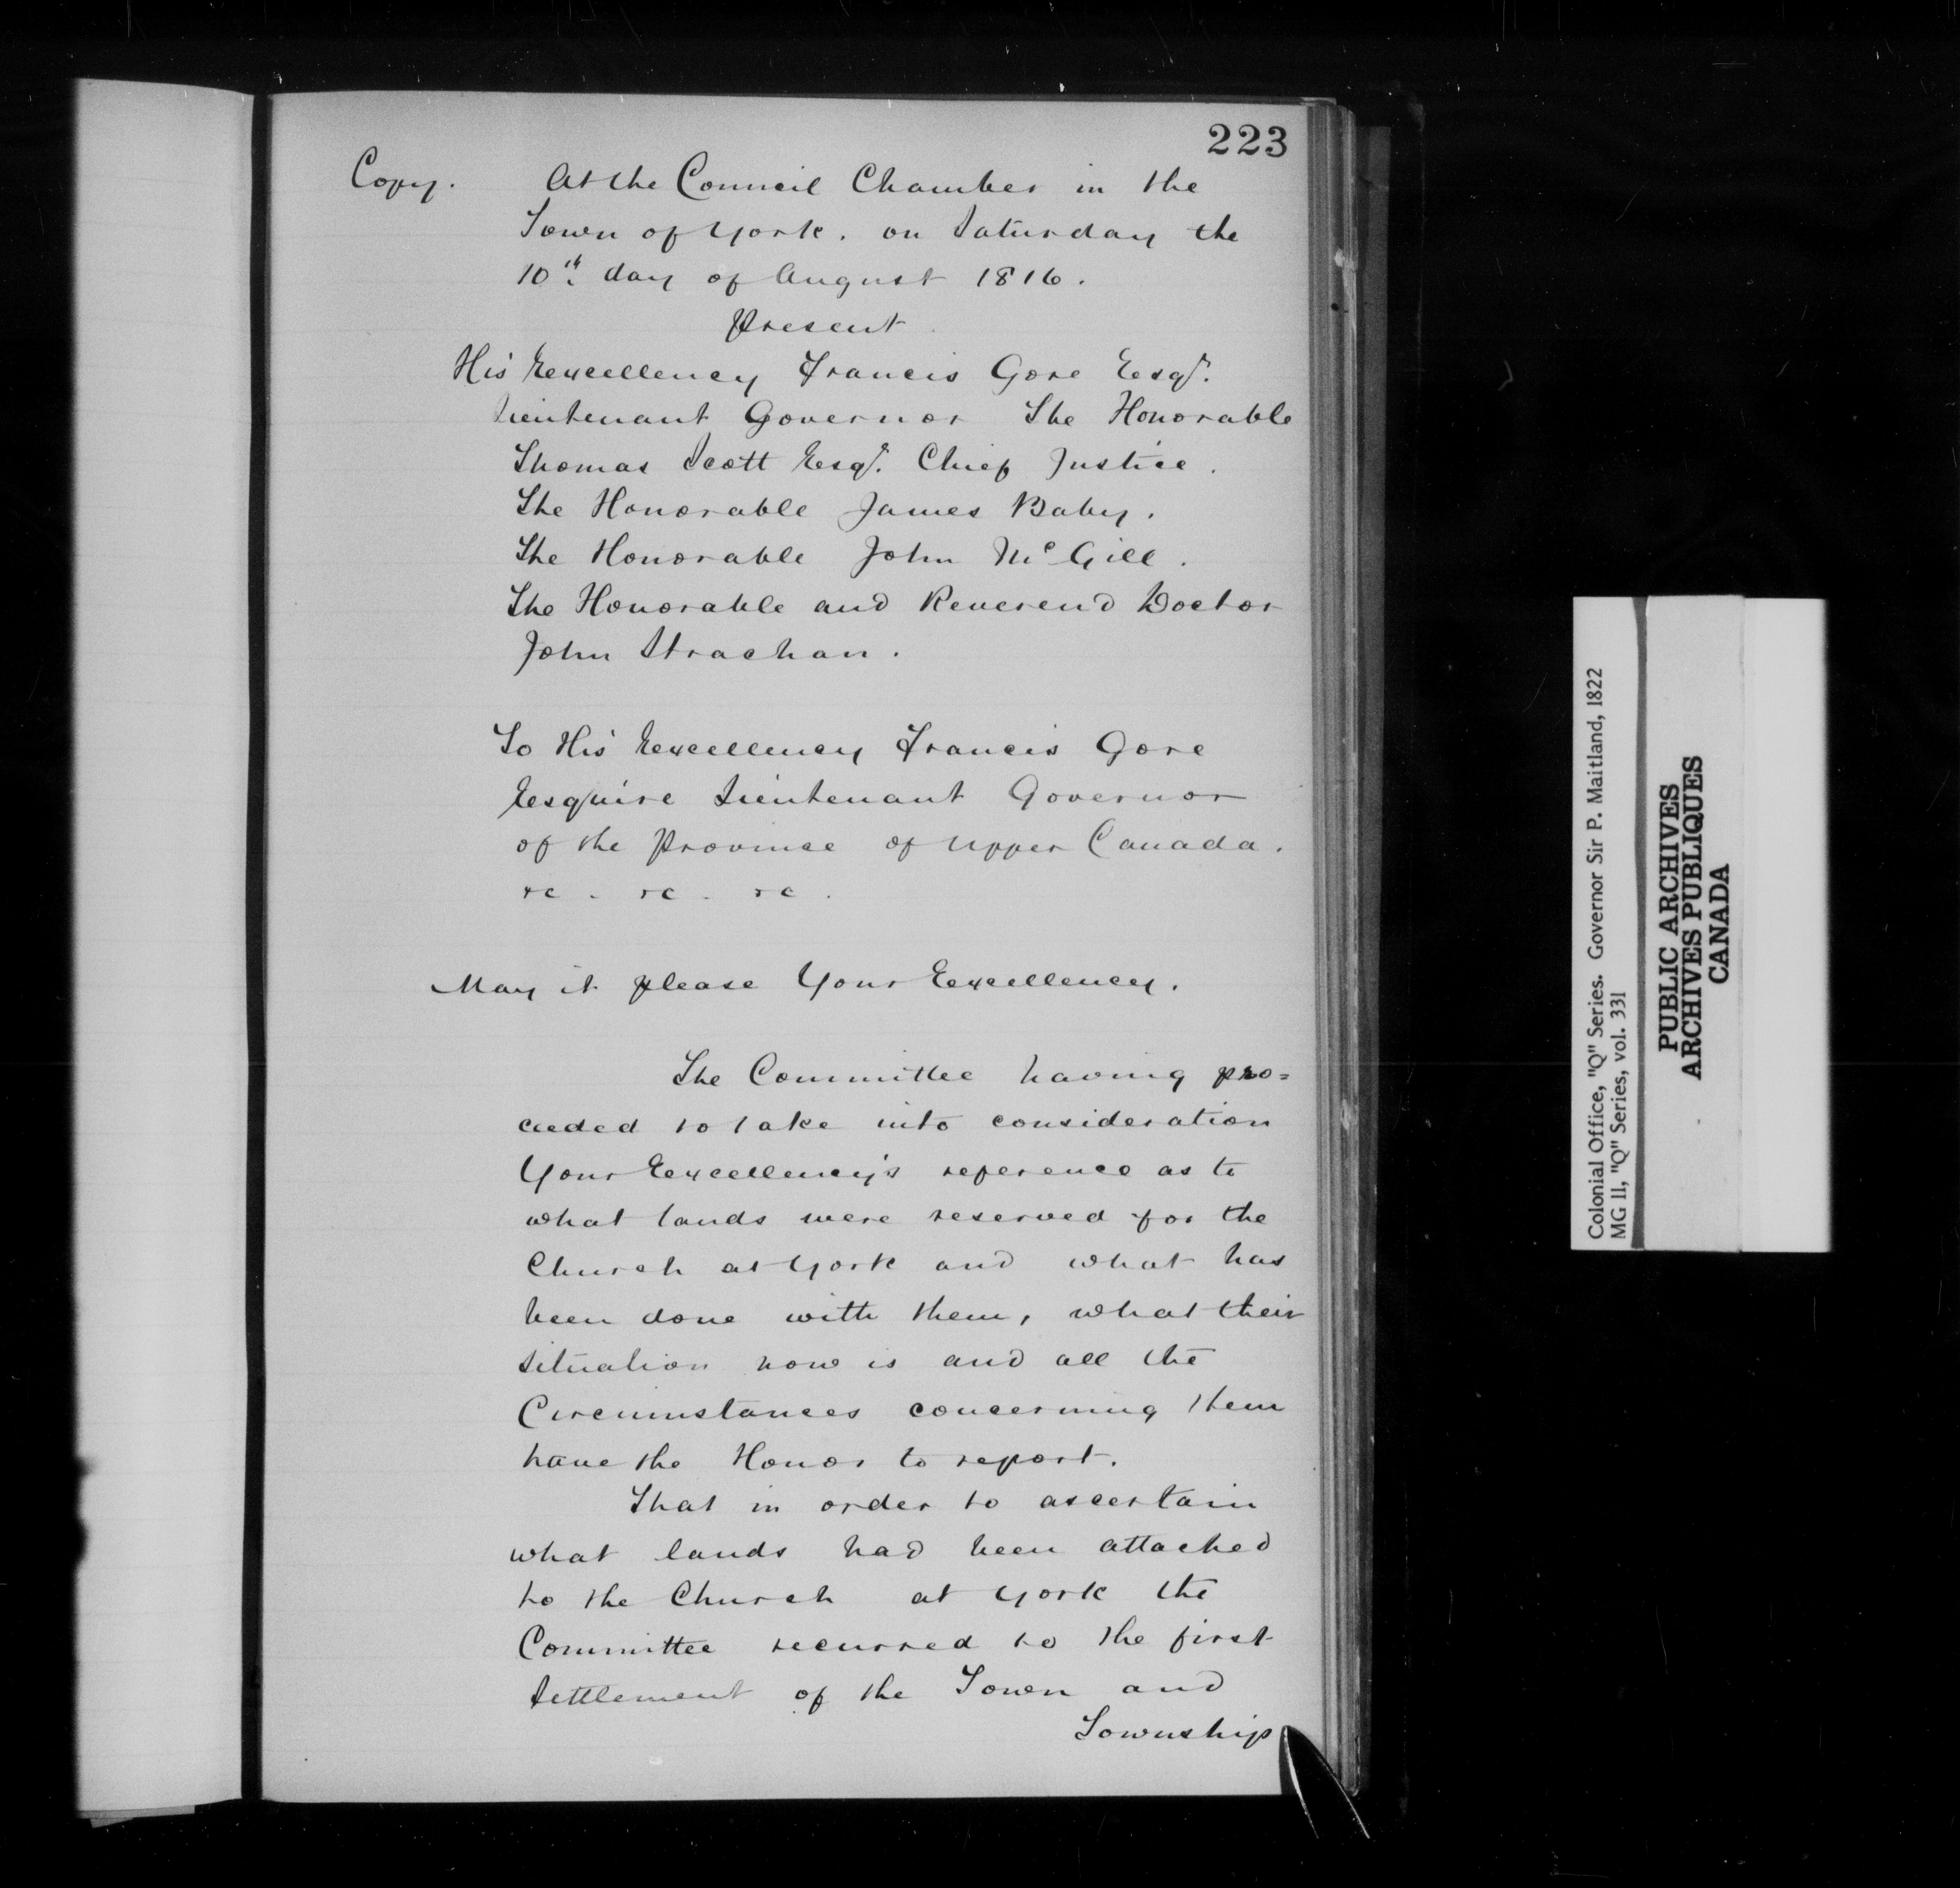 223
Copy. At the Council Chamber in the
Town of York. on Saturday the
10th. day of August 1816.
Present
His Excellency Francis Gore Esqr.
Lieutenant Governor The Honorable
Thomas Scott Esqr. Chief Justice.
The Honorable James Baby.
The Honorable John McGill.
The Honorable and Reverend Doctor
John Strachan.
To His Excellency Francis Gore
Esquire Lieutenant Governor
of the Province of Upper Canada.
&c. &c. &c.
May it please Your Excellency.
The Committee having pro=
ceeded to take into consideration
Your Excellency's reference as to
what lands were reserved for the
Church at York and what has
been done with them, what their
situation now is and all the
Circumstances concerning them
have the Honor to report.
That in order to ascertain
what lands had been attached
to the Church at York the
Committee recurred to the first
Settlement of the Town and
Township
Colonial Office, "Q" Series. Governor Sir P. Maitland, 1822
MG 11, "Q" Series, vol. 331
PUBLIC ARCHIVES
ARCHIVES PUBLIQUES
CANADA